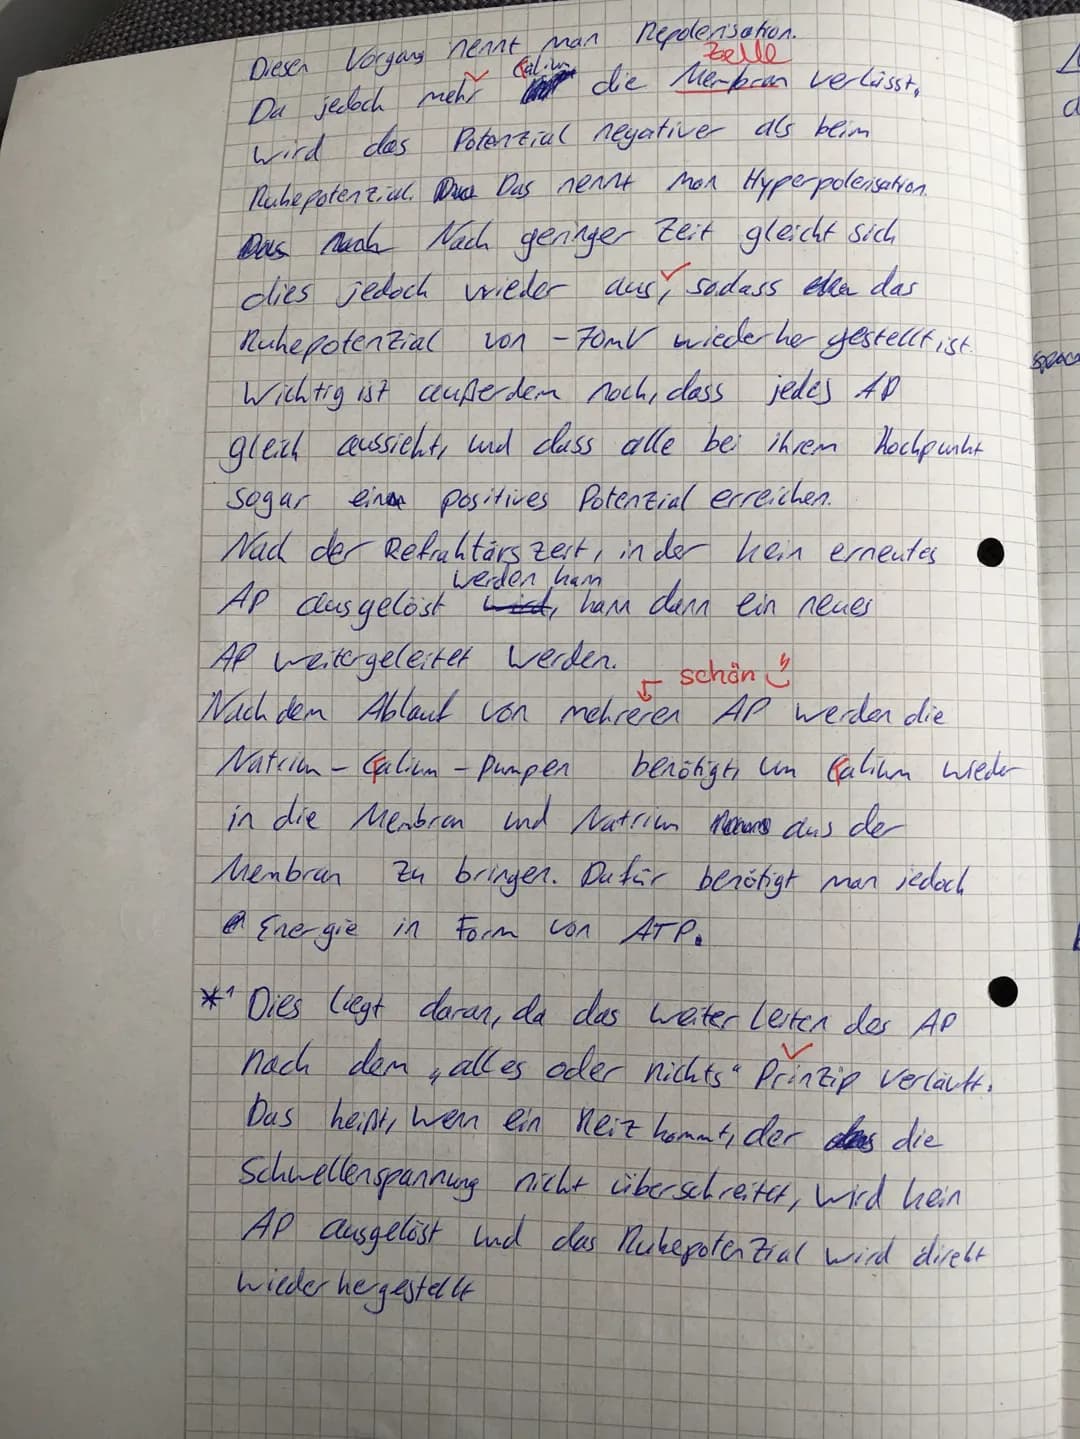 Diesen Vorgang nennt man Repolarisation.
Zelle
Da jedoch mehr Kalium die Membran verlässt,
wird das Potenzial negativer als beim
Ruhepotenzial. Das nennt man Hyperpolarisation.
Das Nach Nach geringer Zeit gleicht sich
dies jedoch wieder aus, sodass das
Ruhepotenzial von -70mV wiederhergestellt ist.
Wichtig ist außerdem noch, dass jedes AP
gleich aussieht, und dass alle bei ihrem Hochpunkt
sogar ein positives Potenzial erreichen.
Nach der Refraktärszeit, in der kein erneutes
werden kann
AP ausgelöst wird, kann dann ein neues
AP weitergeleitet werden.
schön
Nach dem Ablauf von mehreren AP werden die
Natrium-Kalium-Pumpen benötigt, um Kalium wieder
in die Membran und Natrium aus der
Membran zu bringen. Dafür benötigt man jedoch
Energie in Form von ATP.
*1 Dies liegt daran, da das weiterleiten des AP
nach dem „alles oder nichts“ Prinzip verläuft.
Das heißt, wenn ein Reiz kommt, der die
Schwellenspannung nicht überschreitet, wird kein
AP ausgelöst und das Ruhepotenzial wird direkt
wiederhergestellt